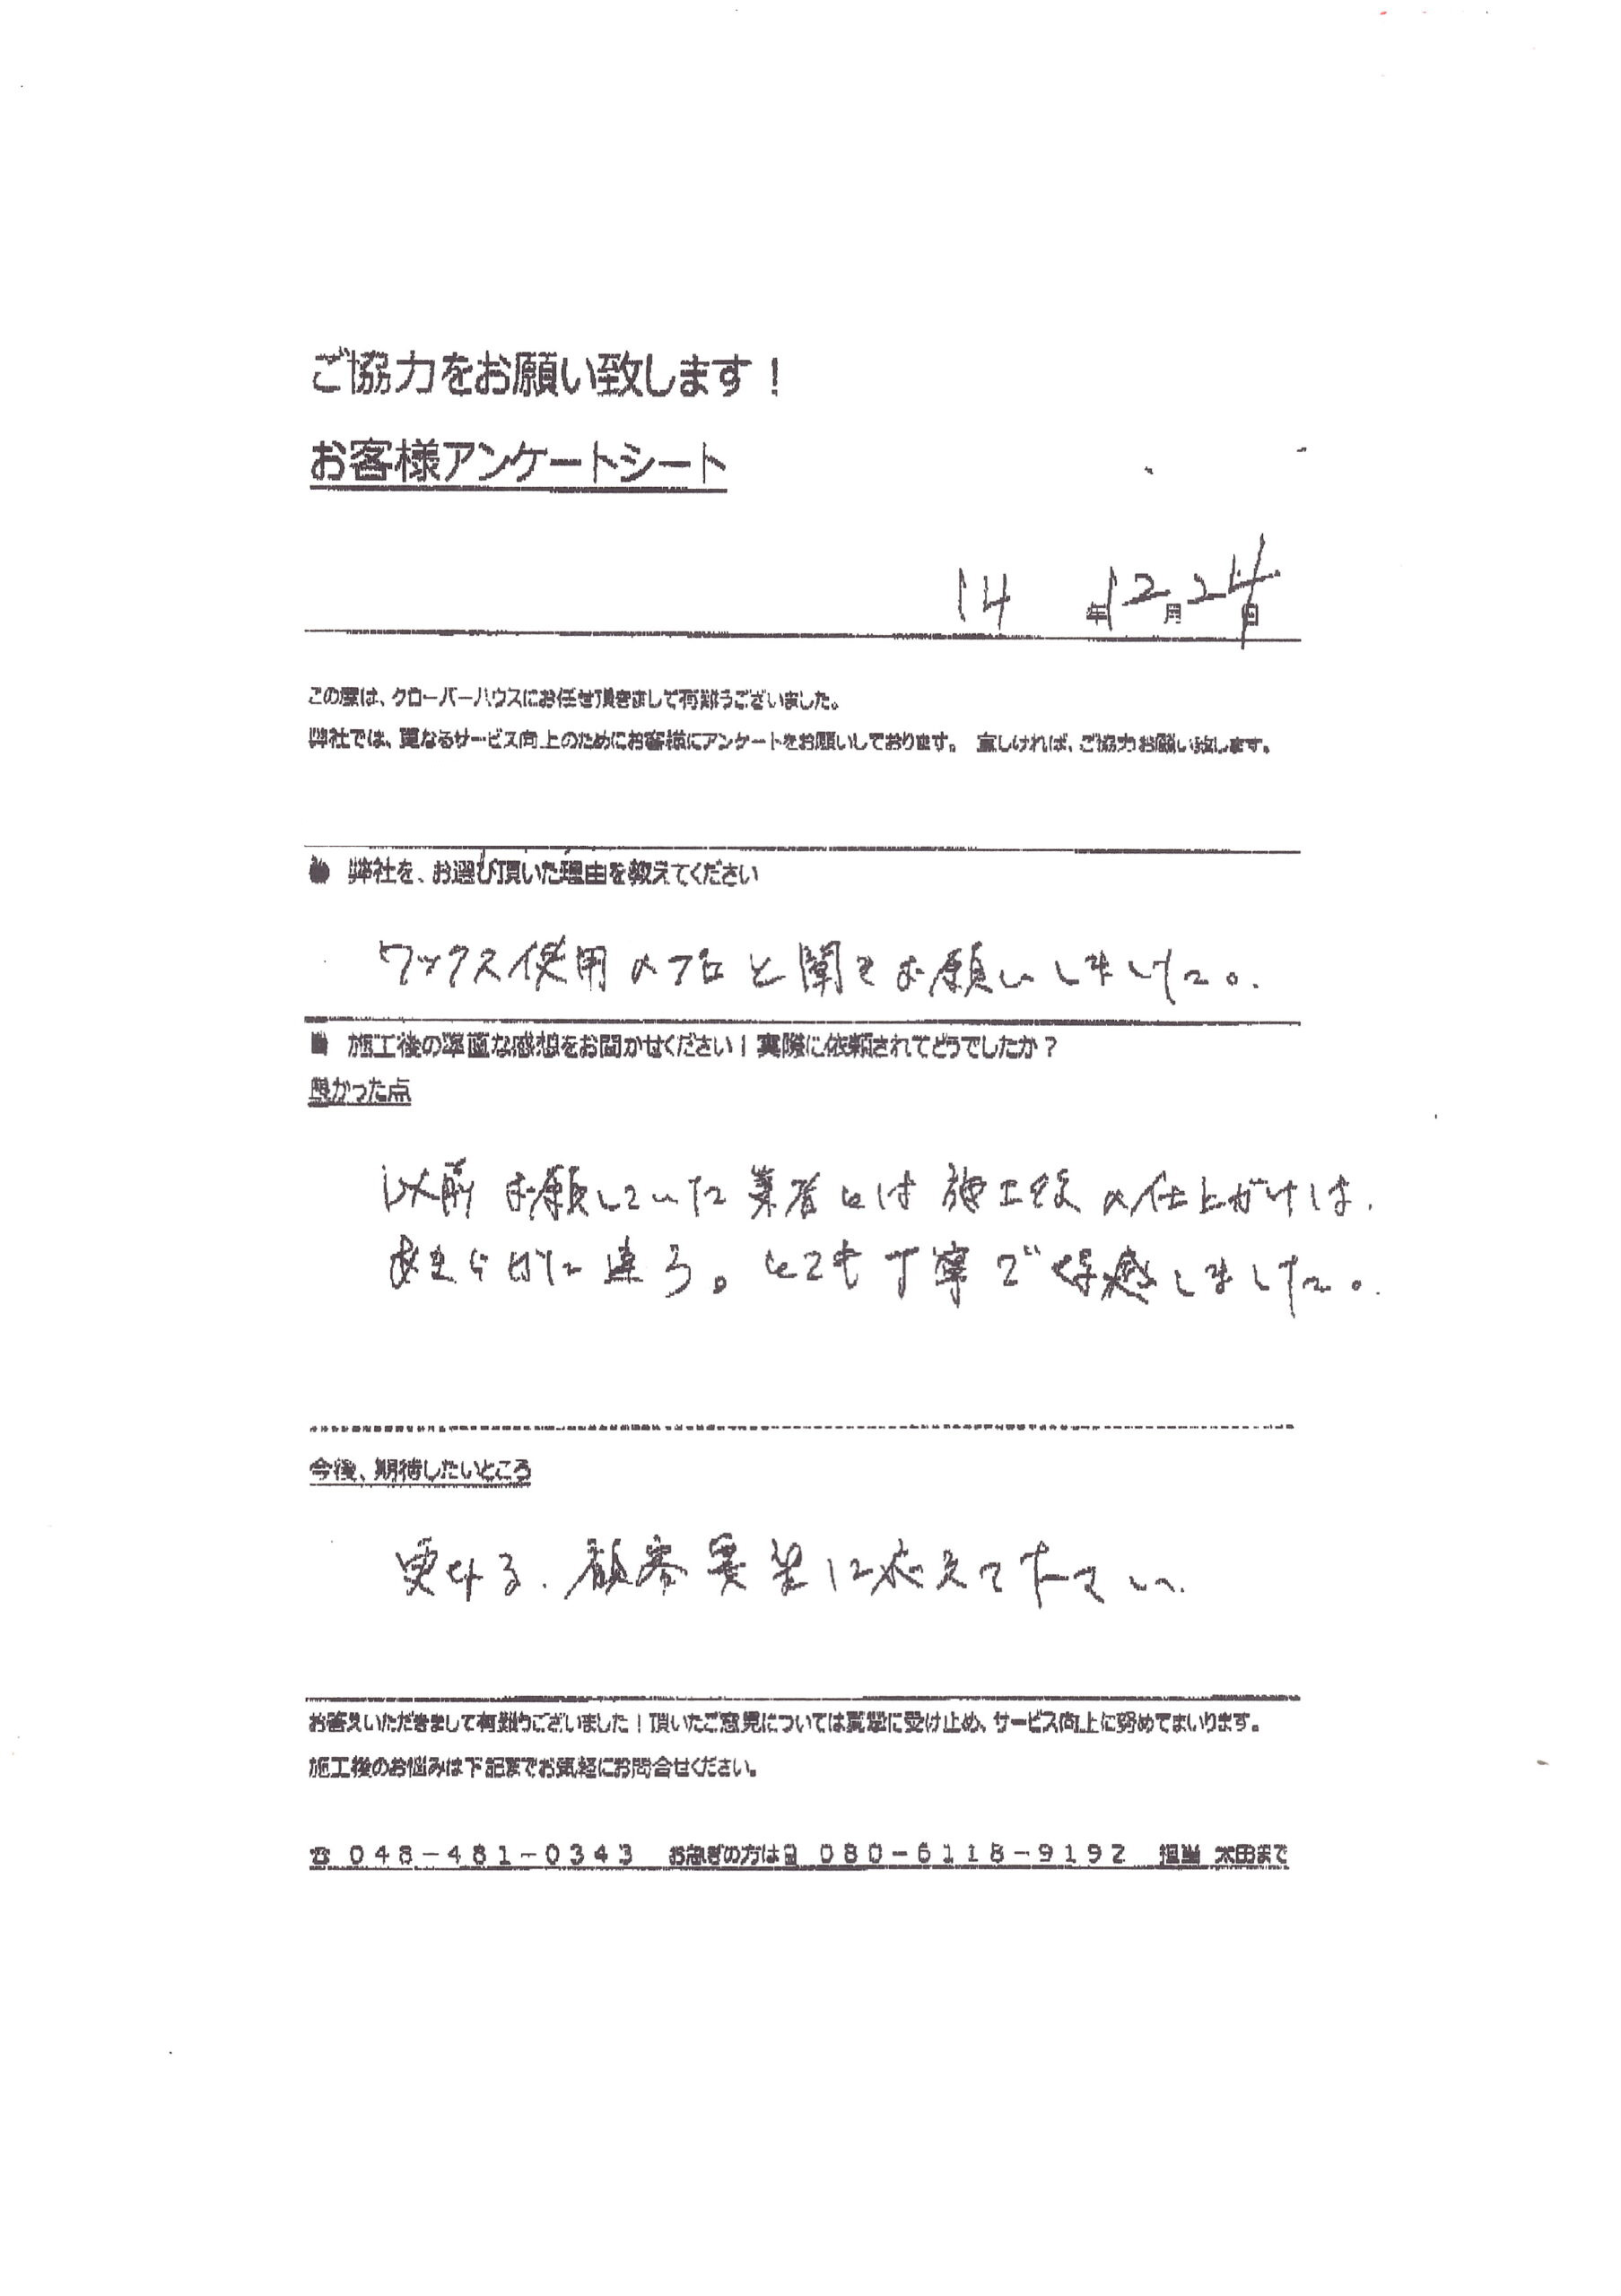 ご協力をお願い致します!
お客様アンケートシート
14 年 12 月 24 日
この度は、クローバーハウスにお任せ頂きまして有難うございました。
弊社では、更なるサービス向上のためにお客様にアンケートをお願いしております。 宜しければ、ご協力お願い致します。
● 弊社を、お選び頂いた理由を教えてください
ワックス使用のプロと聞きお願いしました。
■ 施工後の率直な感想をお聞かせください!実際に依頼されてどうでしたか?
良かった点
以前お願いしていた業者とは施工後の仕上がりは、
あきらかに違う。とても丁寧で好感しました。
今後、期待したいところ
更なる、顧客要望に応えて下さい。
お答えいただきまして有難うございました!頂いたご意見については真摯に受け止め、サービス向上に努めてまいります。
施工後のお悩みは下記までお気軽にお問合せください。
☎ 048-481-0343 お急ぎの方は 080-6118-9192 担当 太田まで